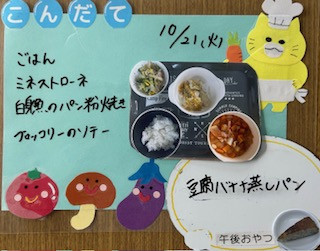 こんだて
10/21(火)
ごはん
ミネストローネ
白身魚のパン粉焼き
ブロッコリーのソテー
豆腐バナナ蒸しパン
午後おやつ